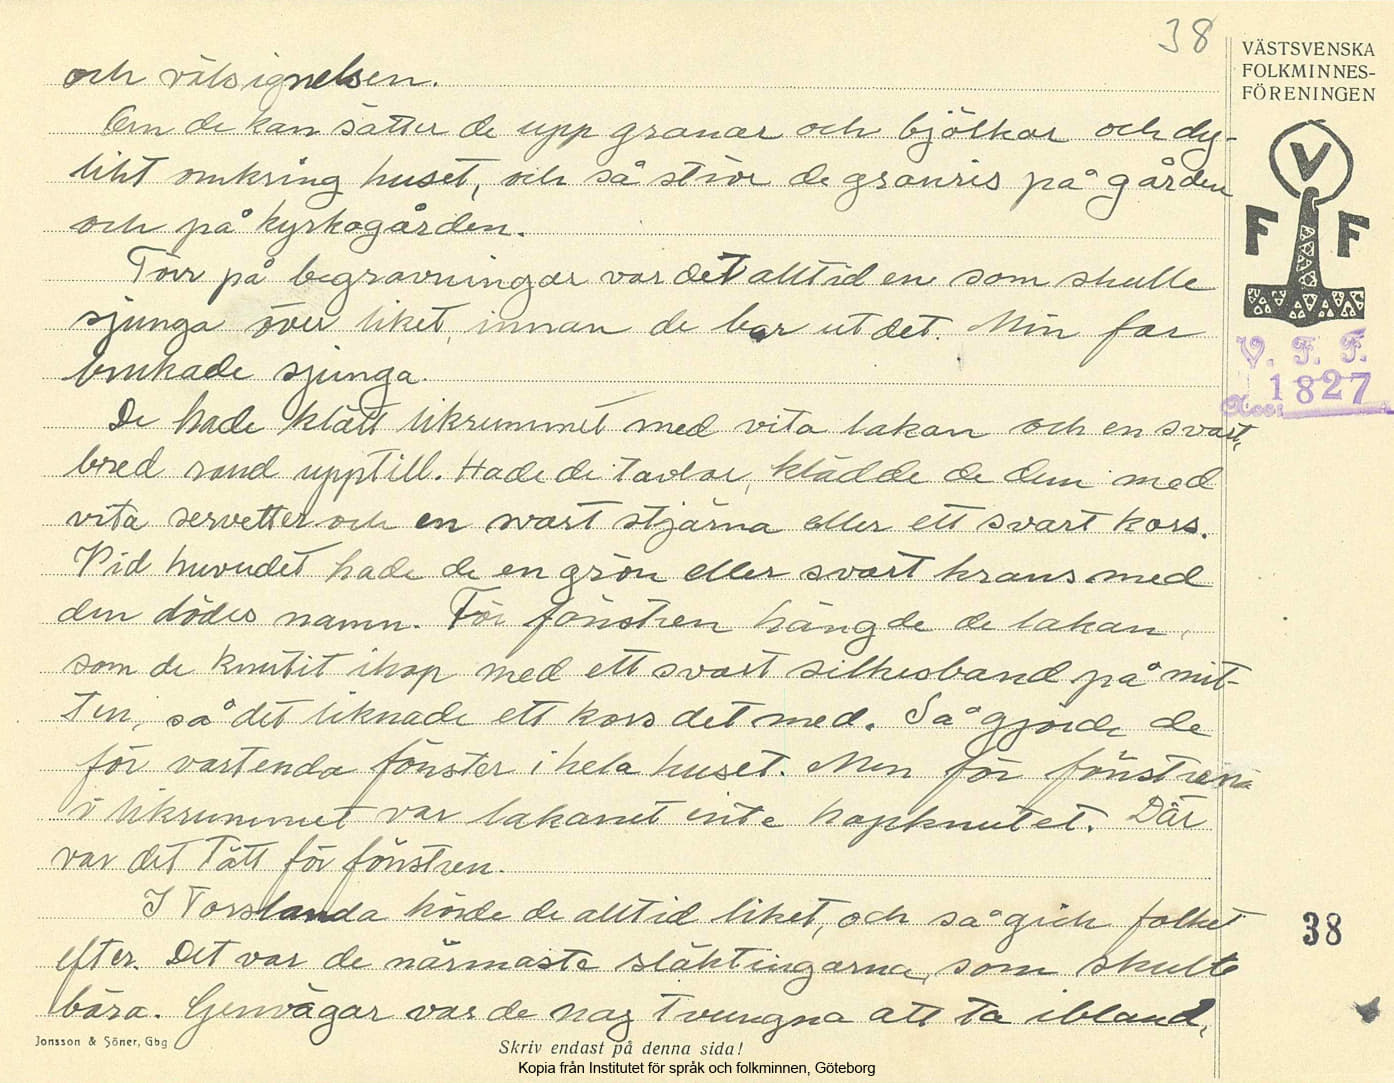 38
VÄSTSVENSKA
FOLKMINNES-
FÖRENINGEN
V
F F
V. F. F.
1827
och välsignelsen.
Om de kan sätter de upp granar och bjölkar och dy-
likt omkring huset, och så strör de granris på gården
och på kyrkogården.
Förr på begravningar var det alltid en som skulle
sjunga över liket, innan de bar ut det. Min far
brukade sjunga.
De hade klätt likrummet med vita lakan och en svart,
bred rand upptill. Hade de tavlor, klädde de dem med
vita servetter och en svart stjärna eller ett svart kors.
Vid huvudet hade de en grön eller svart krans med
den dödes namn. För fönstren hängde de lakan,
som de knutit ihop med ett svart silkesband på mit-
ten, så det liknade ett kors det med. Så gjorde de
för vartenda fönster i hela huset. Men för fönstrena
i likrummet var lakanet inte hopknutet. Där
var det tätt för fönstren.
I Torslanda körde de alltid liket, och så gick folket
efter. Det var de närmaste släktingarna, som skulle
bära. Genvägar var de nog tvungna att ta ibland,
38
Jonsson & Söner, Gbg
Skriv endast på denna sida!
Kopia från Institutet för språk och folkminnen, Göteborg